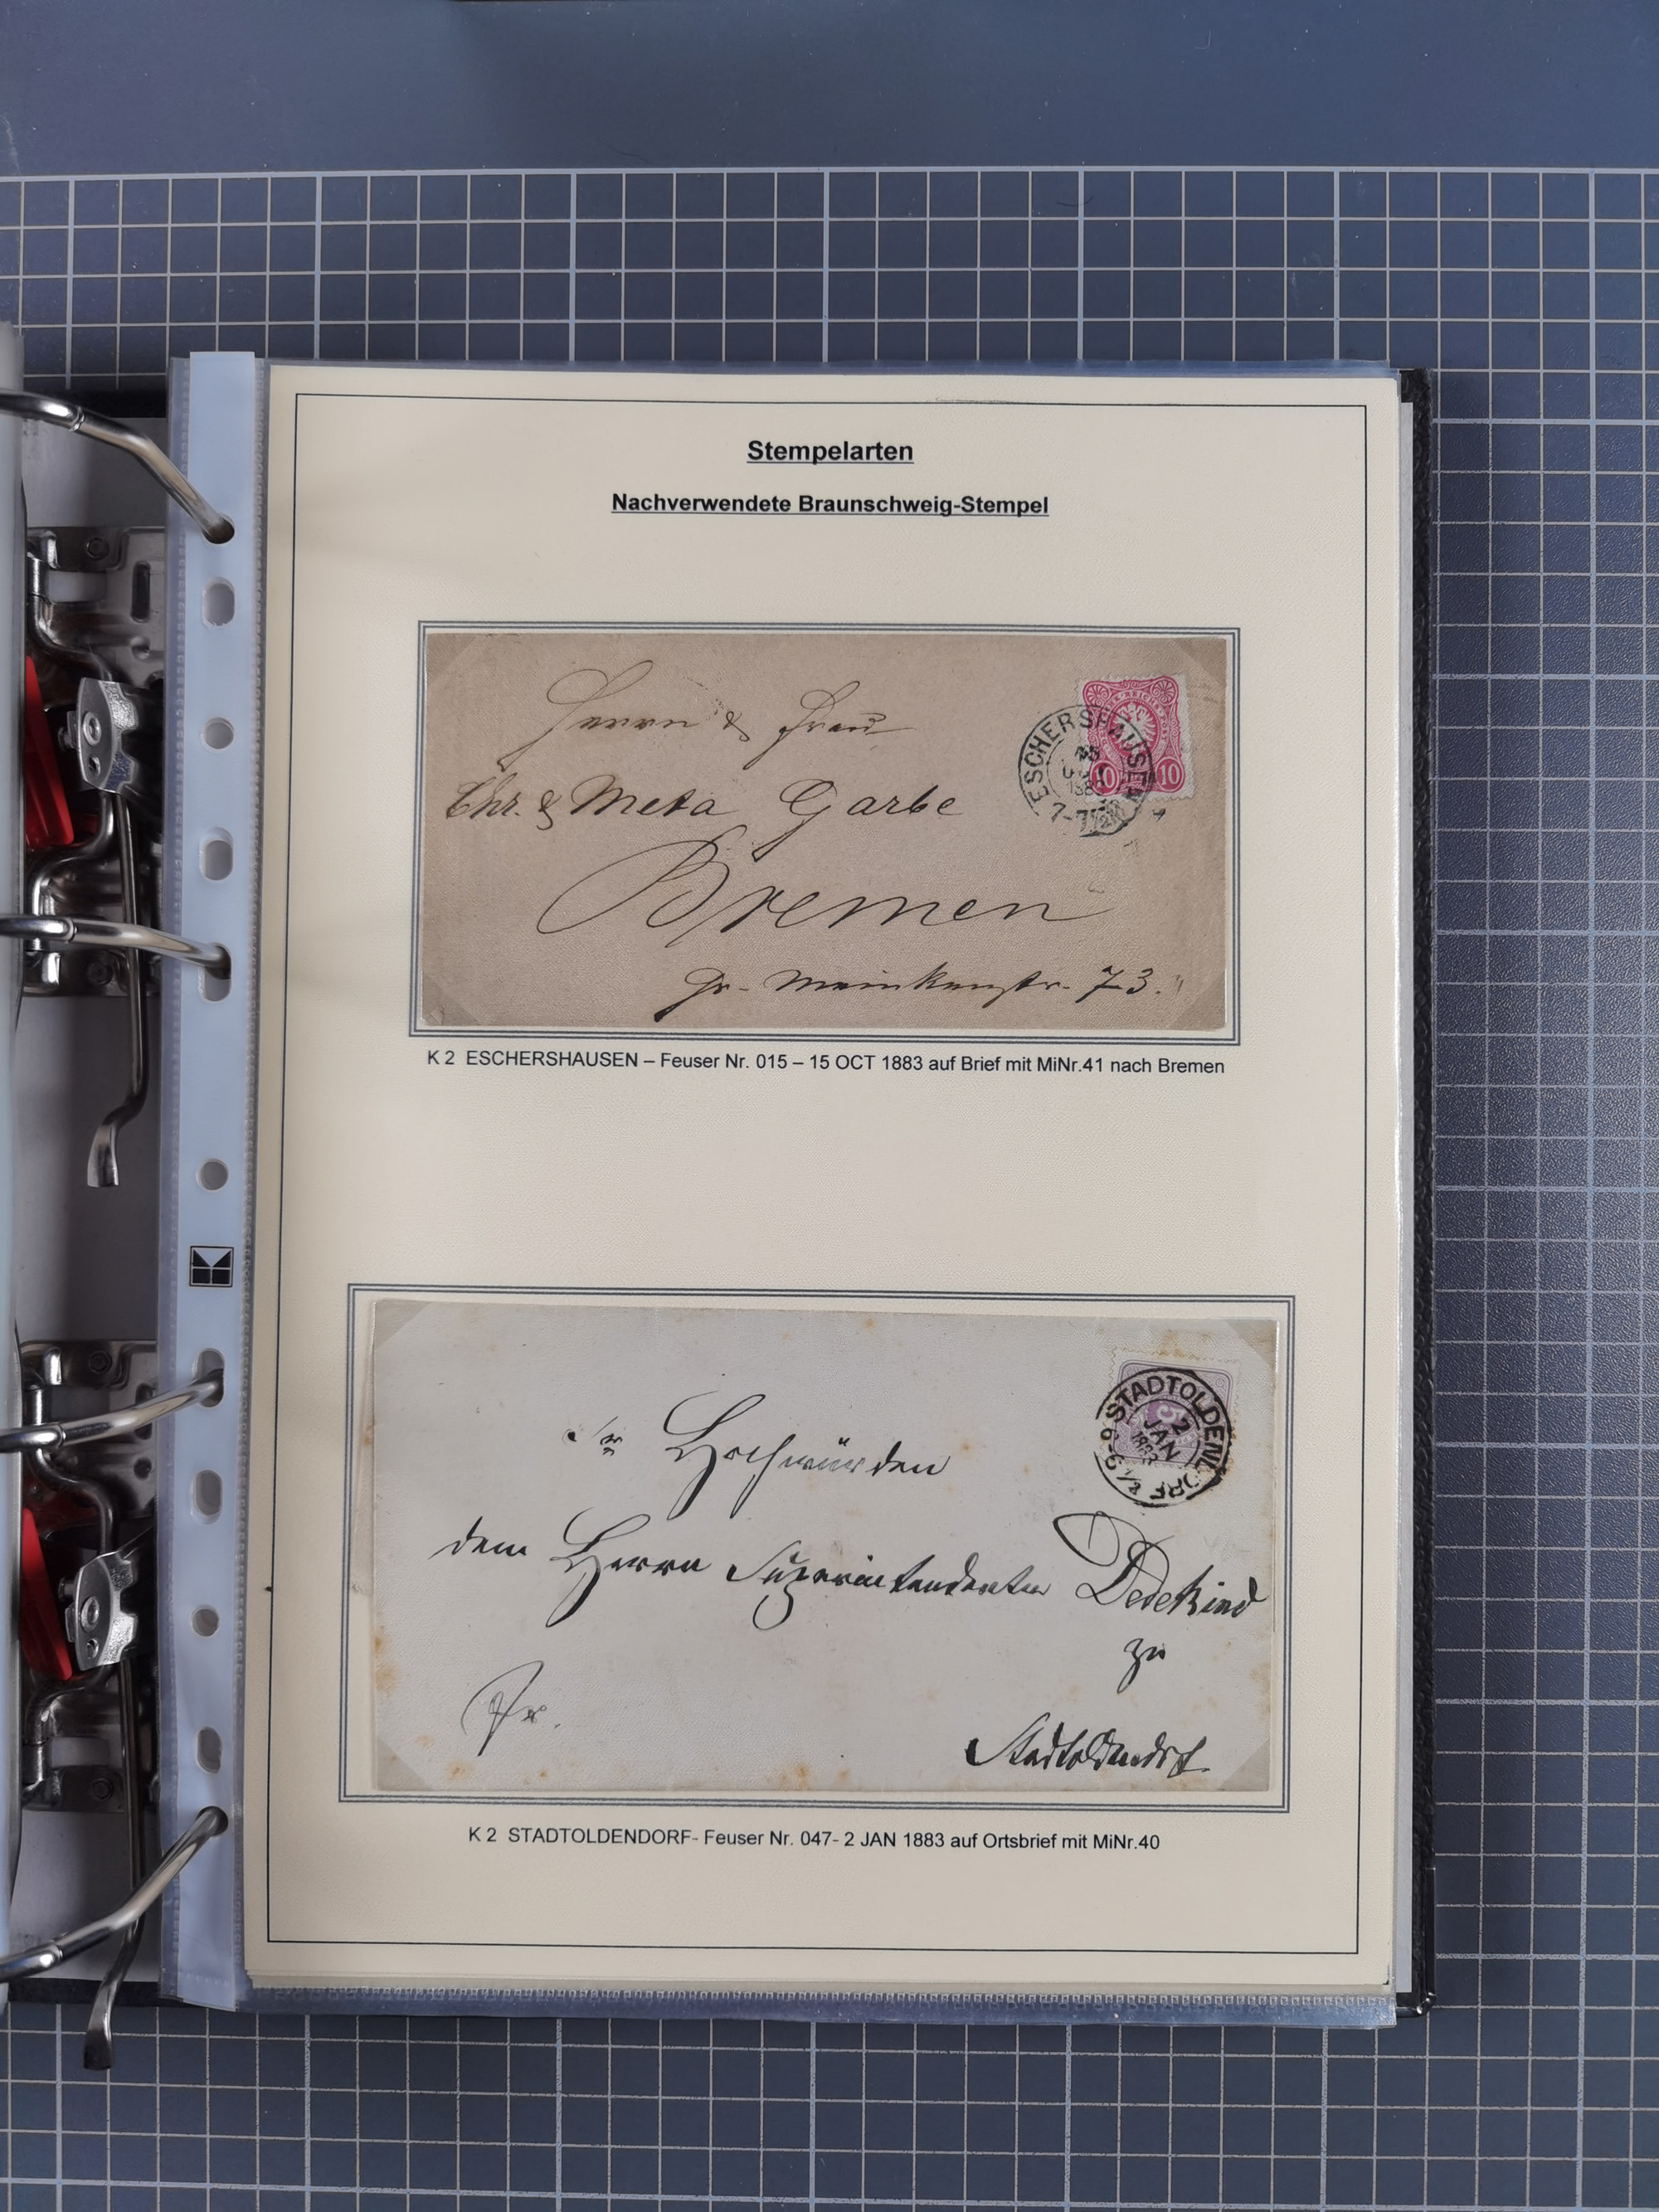 Stempelarten
Nachverwendete Braunschweig-Stempel
Herrn & Frau
Chr. & Meta Garbe
Bremen
gr. Meinkenstr. 73.
ESCHERSHAUSEN
15
OCT
188
7-7½N
10 10
K 2 ESCHERSHAUSEN – Feuser Nr. 015 – 15 OCT 1883 auf Brief mit MiNr.41 nach Bremen
Sr Hochwürden
dem Herrn Superintendenten Dedekind
zu
Stadtoldendorf
Fr.
STADTOLDENDORF
2
JAN
1883
5
K 2 STADTOLDENDORF- Feuser Nr. 047- 2 JAN 1883 auf Ortsbrief mit MiNr.40